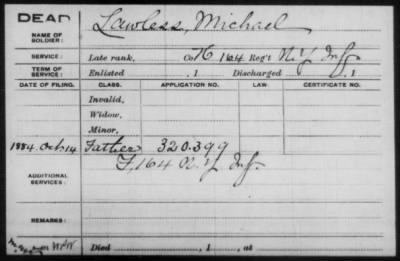 DEAD
NAME OF SOLDIER: Lawless, Michael
SERVICE: Late rank, Co K 164 Reg't N.Y. Inf.
TERM OF SERVICE: Enlisted , 1 Discharged , 1
DATE OF FILING. CLASS. APPLICATION NO. LAW. CERTIFICATE NO.
Invalid,
Widow,
Minor,
1884. Oct 14 Father 320.399
F, 164 N.Y. Inf.
ADDITIONAL SERVICES:
REMARKS:
Died , 1 , at